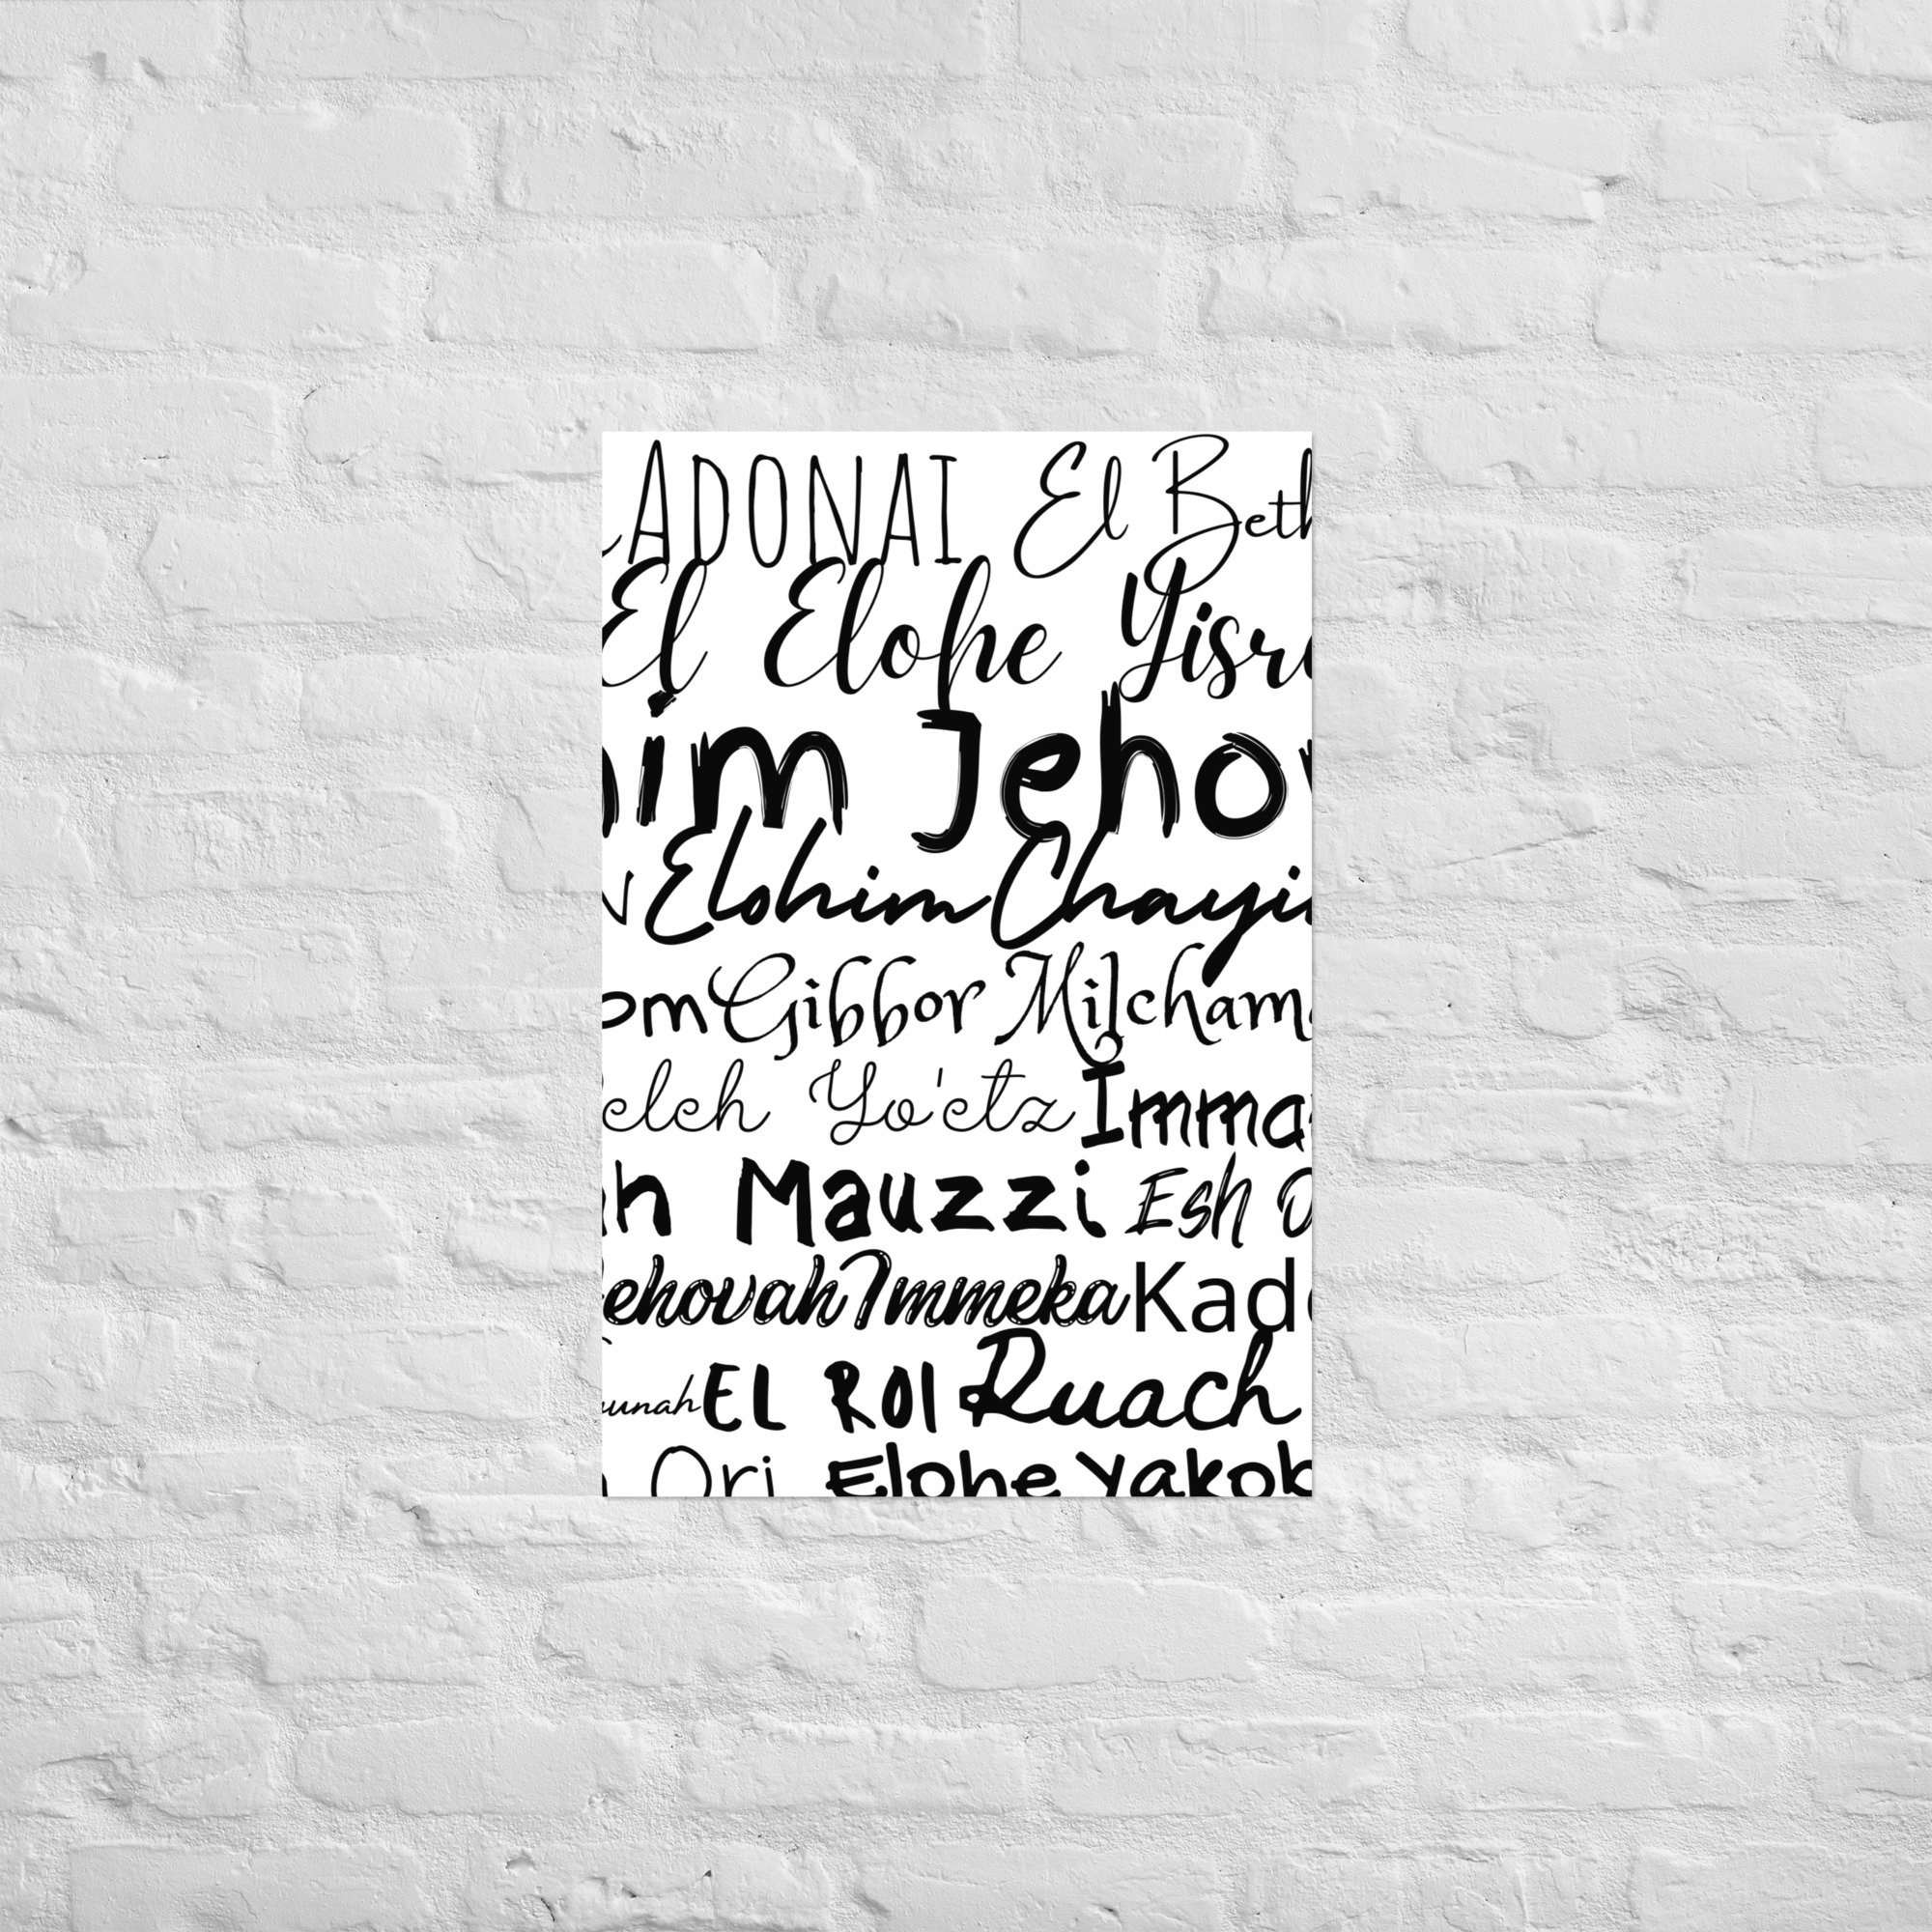 ADONAI El Beth
El Elohe Yisr
him Jeho
Elohim Chayi
om Gibbor Milcham
elech Yo'etz Imma
ah Mauzzi Esh O
ehovah Immeka Kad
unah EL ROI Ruach
Ori Elohe Yakob